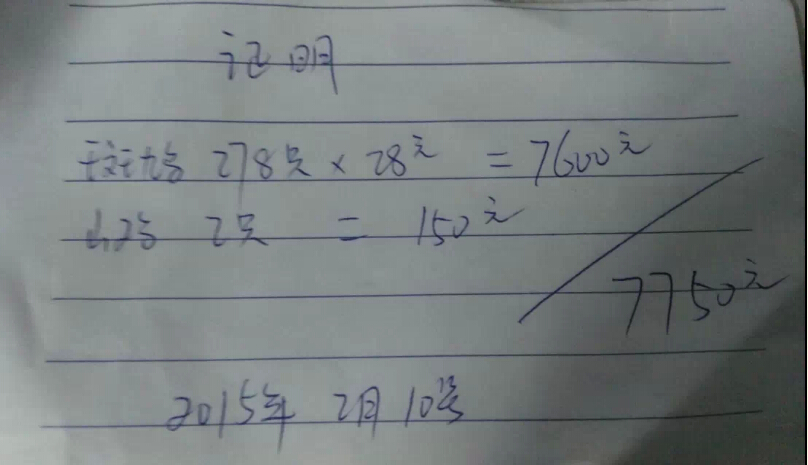 记明
278只×28元 =7600元
2只 = 150元
7750元
2015年 2月10号